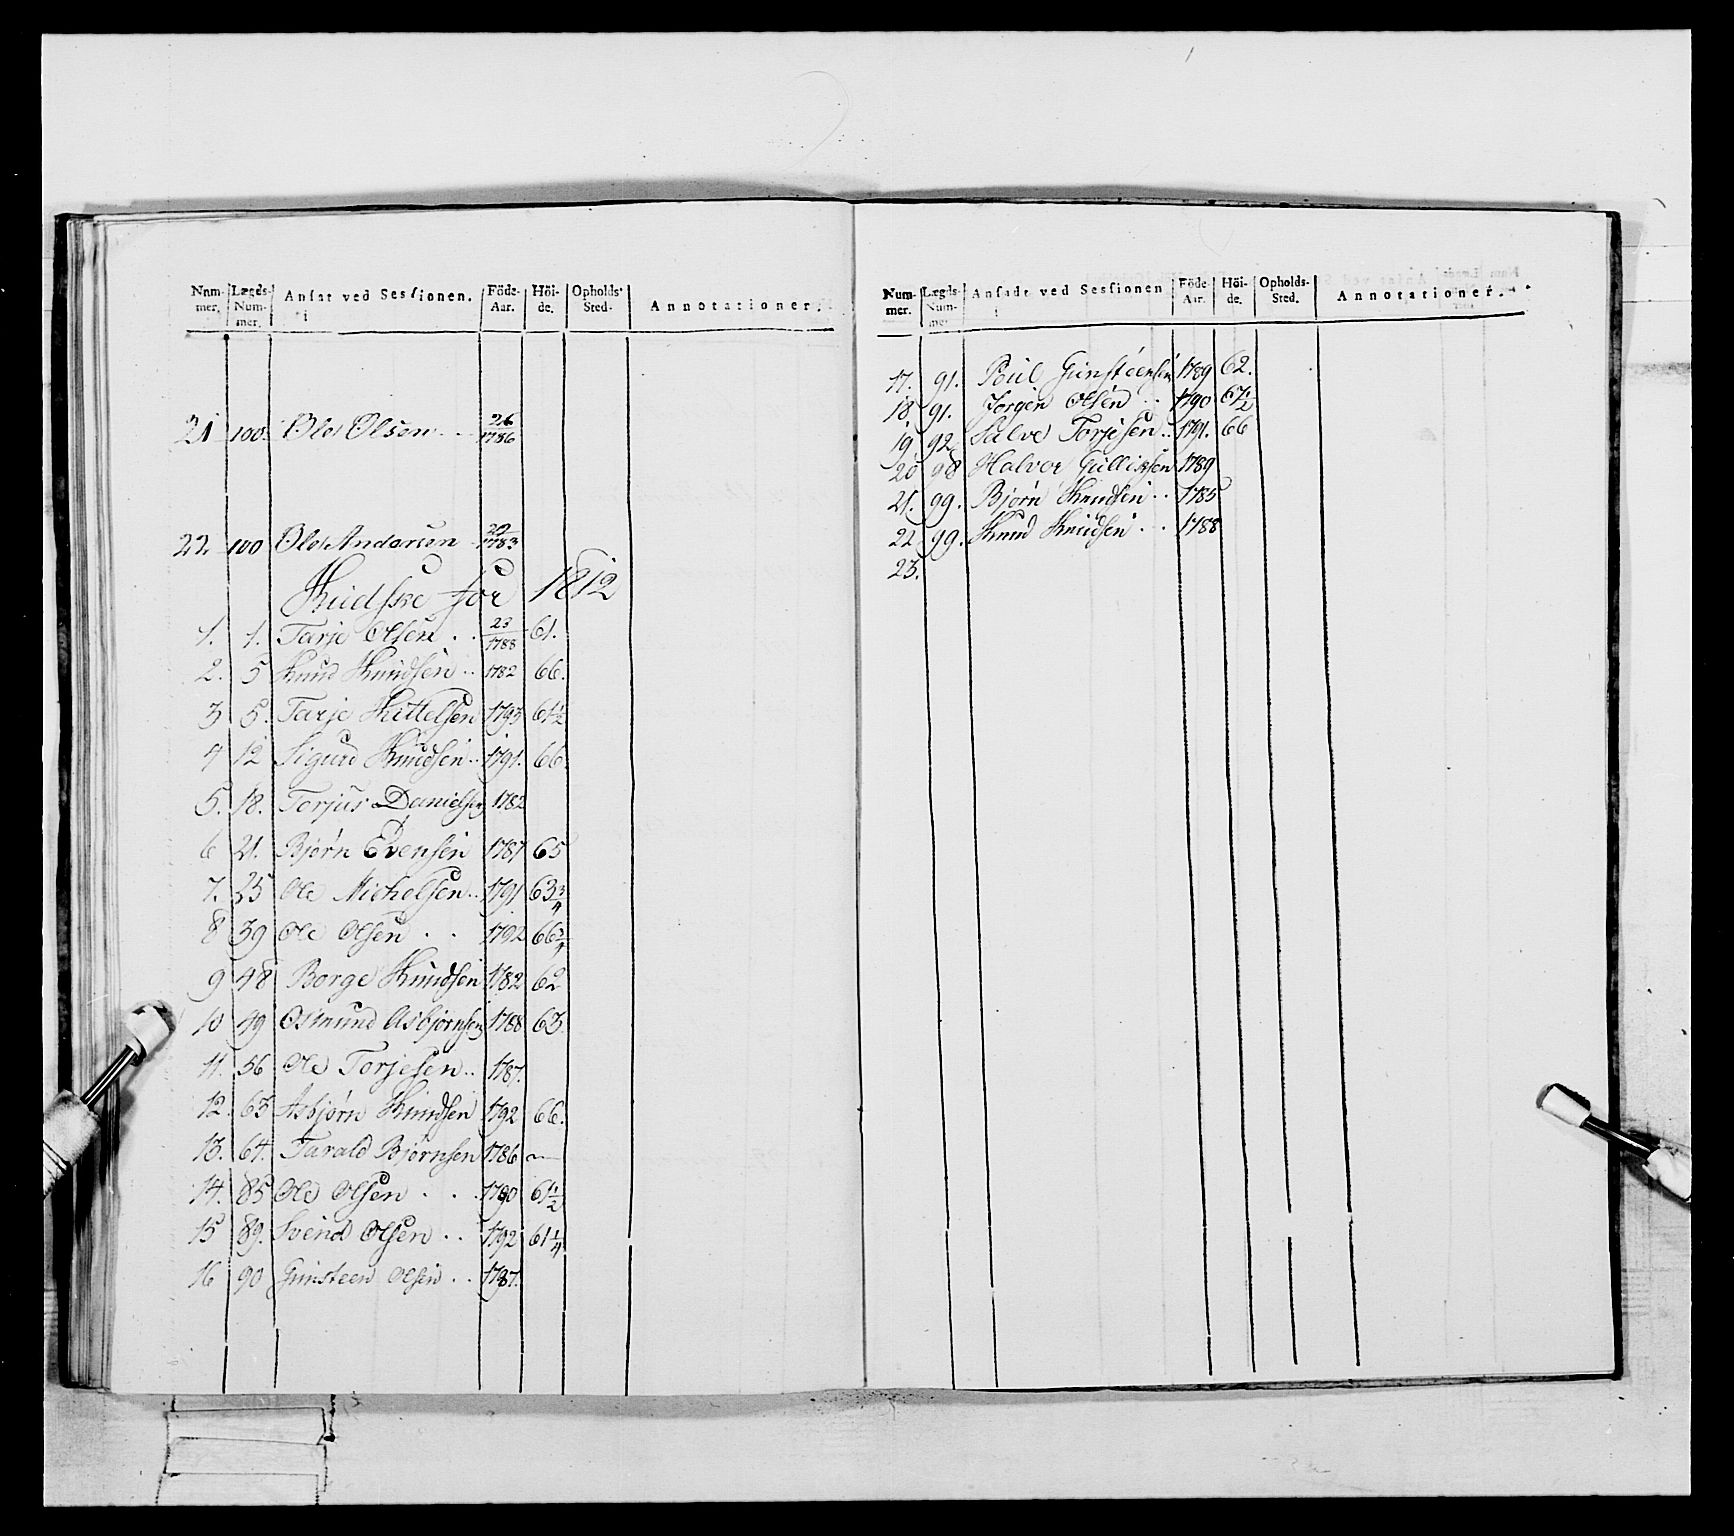 Num-mer. Lægds-Num-mer. Ansat ved Sessionen. Föde-Aar. Höi-de. Opholds-Sted. Annotationer.
21 100. Ole Olsen 26/1786
22. 100 Ole Andersen 29/1783
Kudske for 1812
1. 1. Tarje Olsen .. 23/1788 61.
2. 5 Knud Knudsen .. 1782 66.
3 5. Tarje Kittelsen 1793 61½
4 12 Sigurd Knudsen .. 1791. 66.
5. 18. Torjus Danielsen 1782
6 21. Bjørn Evensen 1787 65
7. 25 Ole Michelsen .. 1791 63¾
8 39 Ole Olsen . . 1792 66¾
9 48 Borge Knudsen 1782 62
10 49 Osmund Asbjørnsen 1788 63
11. 56 Ole Torjesen .. 1787.
12. 63 Asbjørn Knudsen 1792 66.
13. 64. Tarald Bjørnsen 1786 —
14. 85 Ole Olsen . . . 1790 61½
15 89. Svend Olsen . . 1792 61¼
16 90 Gunsteen Olsen . . 1787.
Num-mer. Lægds-Num-mer. Ansadt ved Sessionen Föde Aar. Höi-de. Opholds-Sted. Annotationer.
17. 91. Poul Gunsteensen 1789 62.
18 91. Jørgen Olsen .. 1790 67½
19 92 Salve Torjesen .. 1791. 66
20 98 Halvor Gulliksen 1789
21. 99. Bjørn Knudsen .. 1785
22 99. Knud Knudsen . . 1788
23.